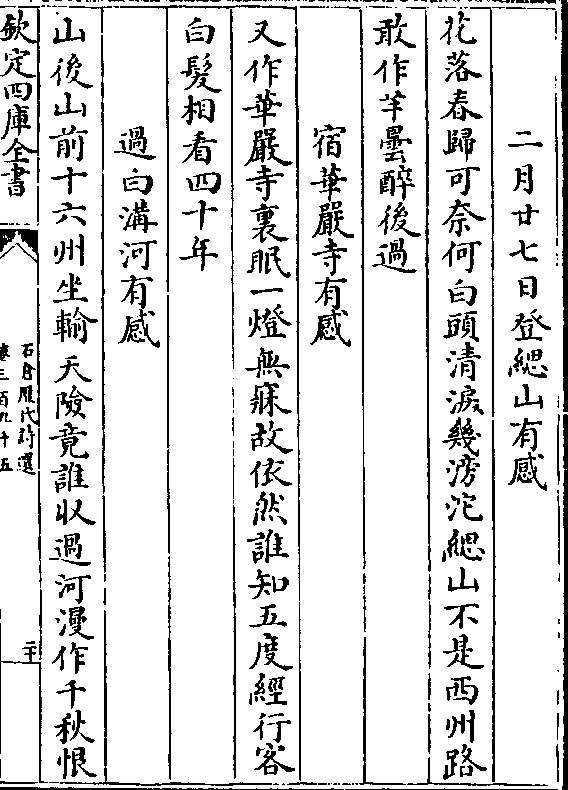 二月廿七日登緦山有感
花落春歸可奈何白頭清淚幾滂沱緦山不是西州路
敢作羊曇醉後過
宿華嚴寺有感
又作華嚴寺裏眠一燈無寐故依然誰知五度經行客
白髮相看四十年
過白溝河有感
山後山前十六州坐輸天險竟誰收過河漫作千秋恨
欽定四庫全書
石倉歷代詩選
卷三百九十五
二十